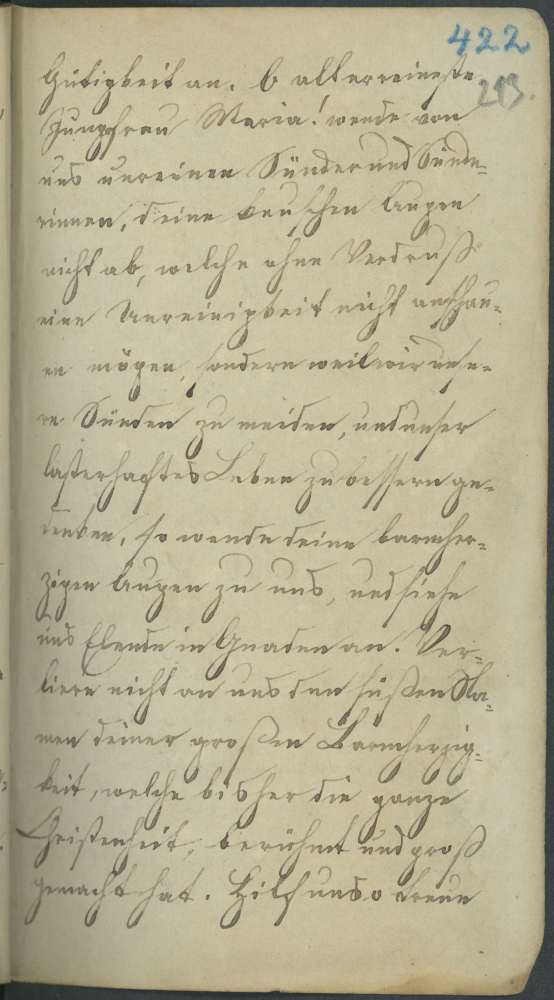 422
213.
Gütigkeit an. O allerreineste
Jungfrau Maria! wende von
uns unreinen Sünder und Sünde-
rinnen, deine keuschen Augen
nicht ab, welche ohne Verdruß
eine Unreinigkeit nicht anschau-
en mögen, sondern weil wir unse-
re Sünden zu meiden, und unser
lasterhaftes Leben zu bessern ge-
denken, so wende deine barmher-
zigen Augen zu uns, und siehe
uns Elende in Gnaden an. Ver-
liere nicht an uns den süßen Na-
men deiner großen Barmherzig-
keit, welche bisher die ganze
Christenheit, berühmt und groß
gemacht hat. Hilf uns o treue